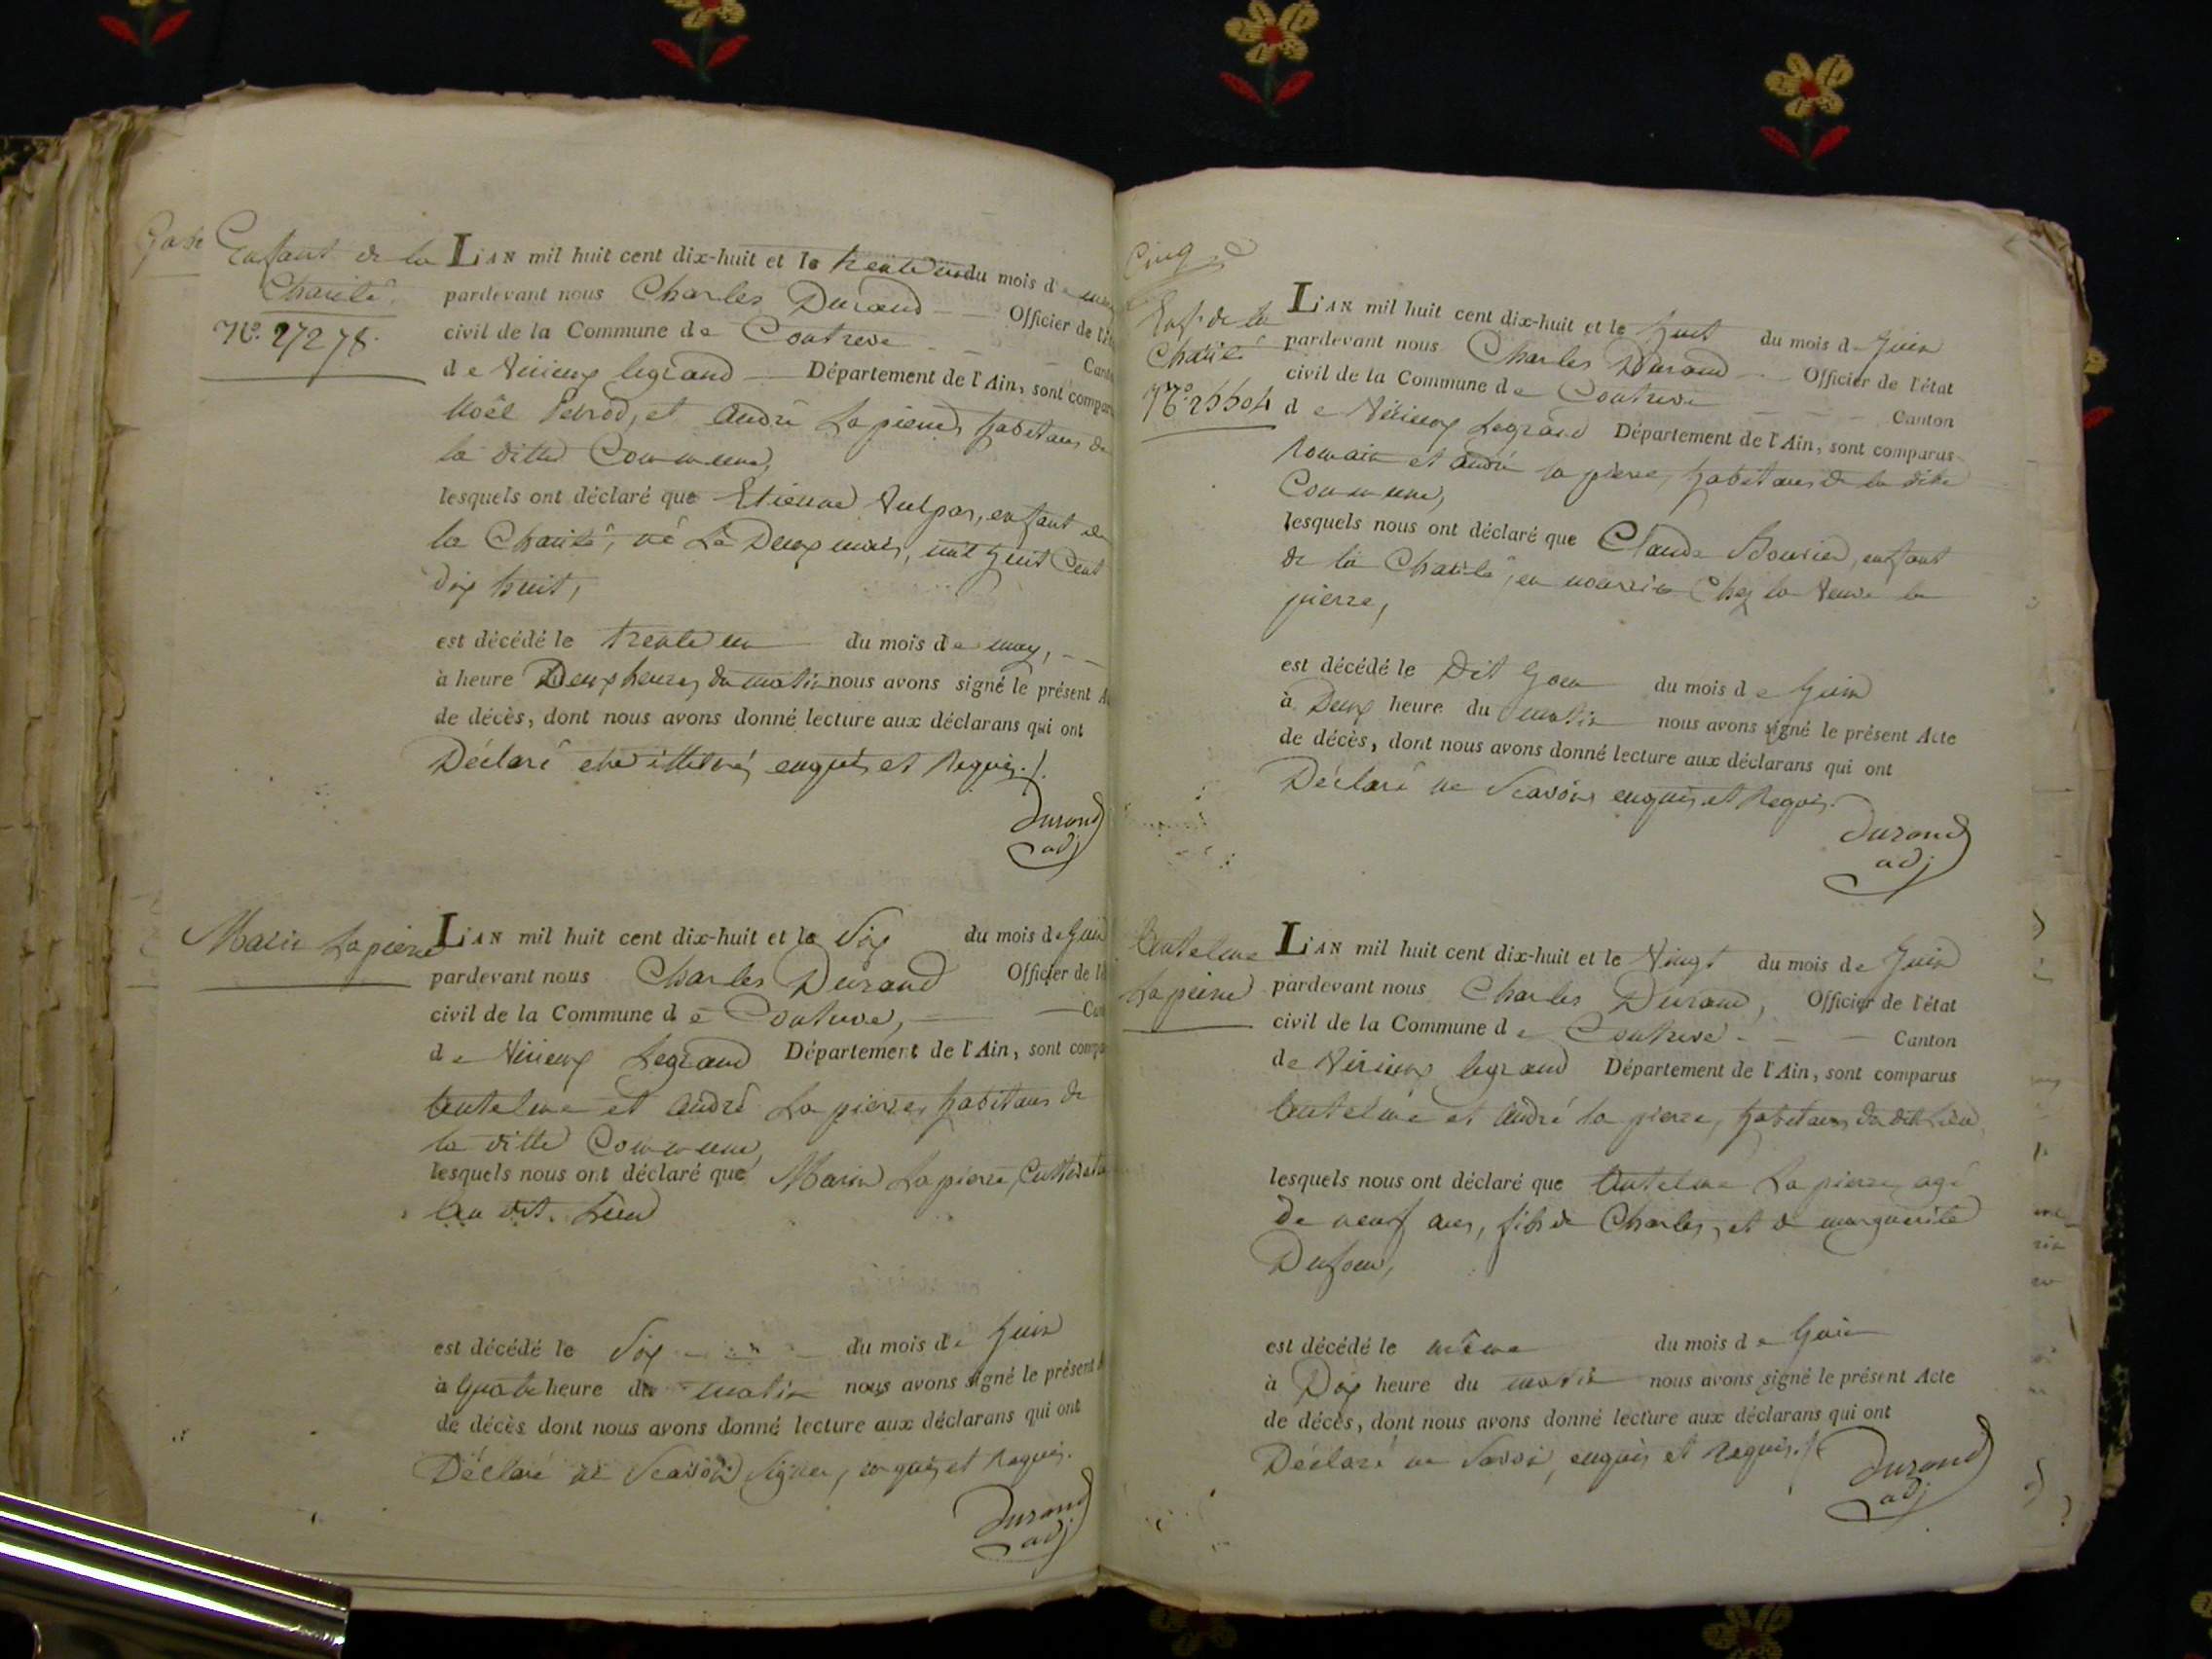 Enfant de la
Charité
N.º 27278.
L'AN mil huit cent dix-huit et le trente un du mois de may
pardevant nous Charles Durand Officier de l'ét
civil de la Commune de Contrevoz Canto
de Virieux legrand Département de l'Ain, sont compar
Noël Peirod, et andré Lapierre, habitans de
la ditte Commune,
lesquels ont déclaré que Etienne Vulpas, enfant de
la Charité, né Le Deux mars, mil huit Cent
dix huit,
est décédé le trente un du mois de may,
à heure Deux heures du matin nous avons signé le présent A
de décès, dont nous avons donné lecture aux déclarans qui ont
Déclaré etre illitrés enquis et Requis.
Durand
adj
Marie Lapierre
L'AN mil huit cent dix-huit et le Six du mois de Juin
pardevant nous Charles Durand Officier de l'é
civil de la Commune de Contrevoz, Can
de Virieux Legrand Département de l'Ain, sont compa
Antelme et andré Lapierre, habitans de
la ditte Commune,
lesquels nous ont déclaré que Marie Lapierre,
au dit Lieu
est décédé le Six du mois de Juin
à quatre heure du matin nous avons signé le présent A
de décès dont nous avons donné lecture aux déclarans qui ont
Déclaré ne Scavoir Signer, enquis et Requis.
Durand
adj
Cinq
Enf. de la
Charité
N.º 25504
L'AN mil huit cent dix-huit et le huit du mois de Juin
pardevant nous Charles Durand Officier de l'état
civil de la Commune de Contrevoz Canton
de Virieux Legrand Département de l'Ain, sont comparus
Romain et andré la pierre, habitans de la ditte
Commune,
lesquels nous ont déclaré que Claude Bouvier, enfant
de la Charité, en nourrice Chez la Veuve la
pierre,
est décédé le Dit jour du mois de Juin
à Deux heure du matin nous avons signé le présent Acte
de décès, dont nous avons donné lecture aux déclarans qui ont
Déclaré ne Scavoir enquis et Requis.
Durand
adj
Antelme
Lapierre
L'AN mil huit cent dix-huit et le Vingt du mois de Juin
pardevant nous Charles Durand, Officier de l'état
civil de la Commune de Contrevoz Canton
de Virieux legrand Département de l'Ain, sont comparus
Antelme et André la pierre, habitans du dit Lieu,
lesquels nous ont déclaré que Antelme Lapierre, agé
de neuf ans, fils de Charles, et de marguerite
Dufour,
est décédé le même du mois de Juin
à Dix heure du matin nous avons signé le présent Acte
de décès, dont nous avons donné lecture aux déclarans qui ont
Déclaré ne Savoir, enquis et Requis.
Durand
adj